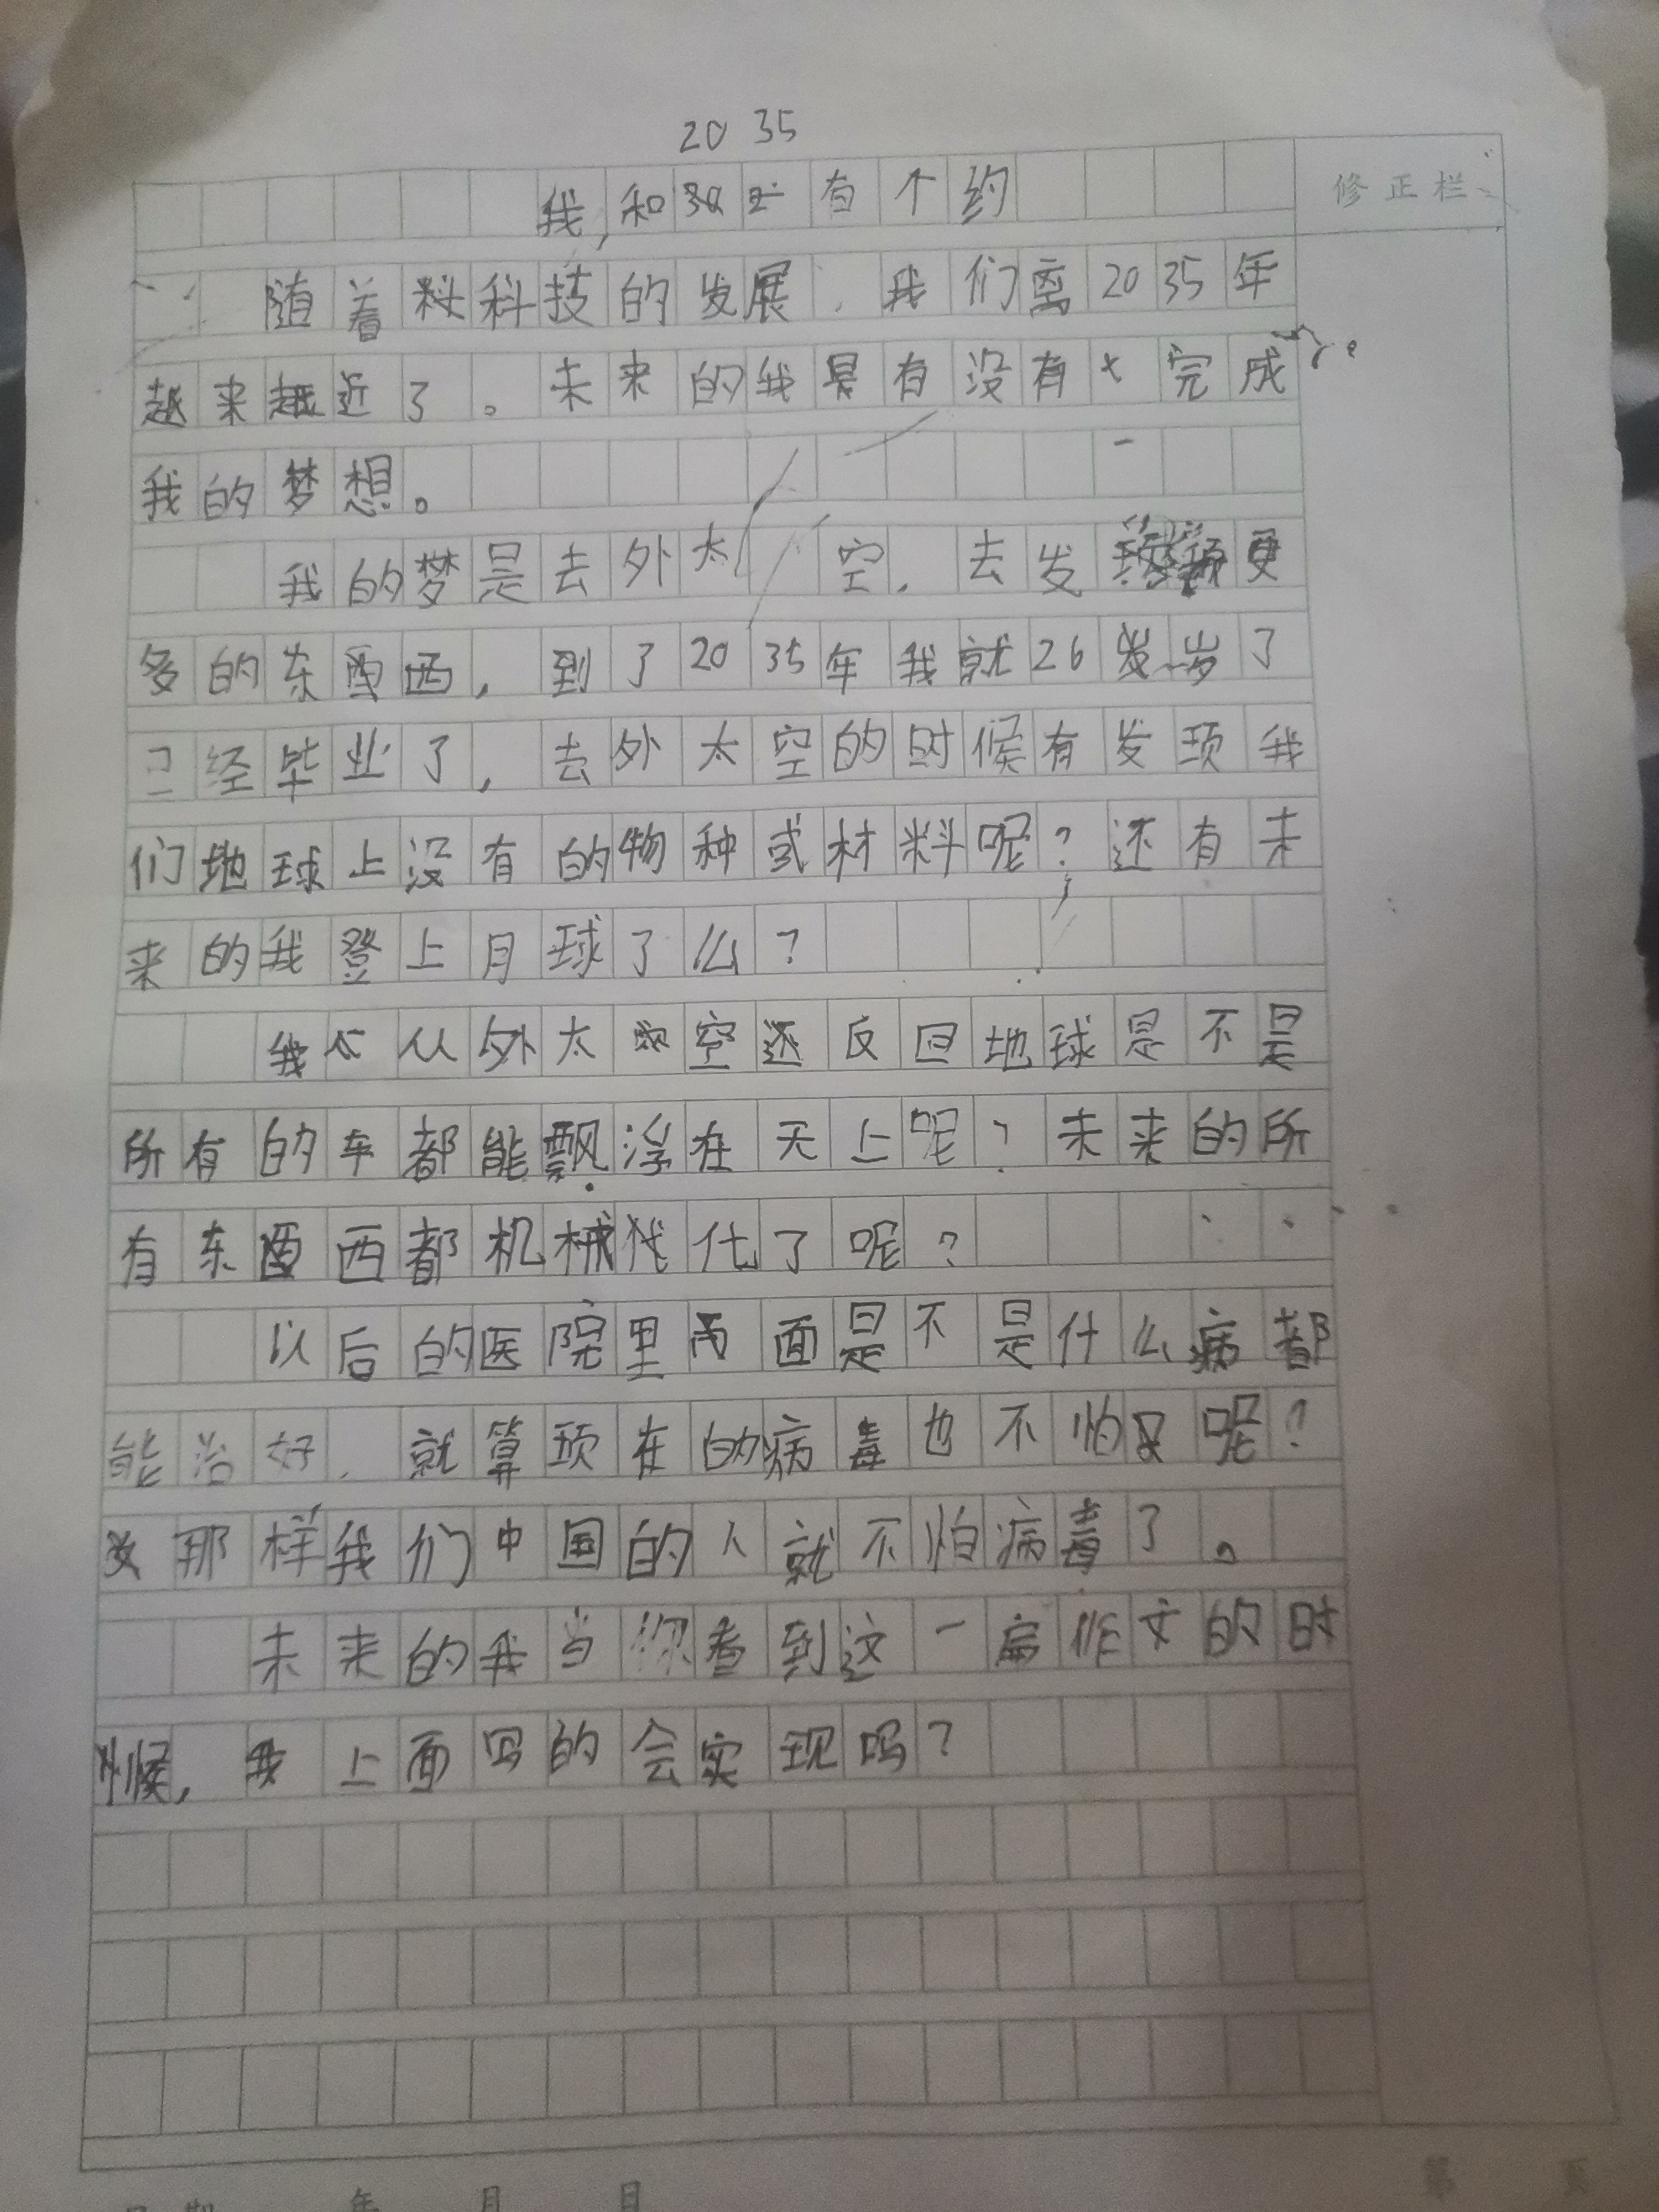 2035
我和有个约
修正栏
随着科技的发展，我们离2035年
越来越近了。未来的我是有没有完成
我的梦想。
我的梦是去外太空，去发现更
多的东西，到了2035年我就26岁了
已经毕业了，去外太空的时候有发现我
们地球上没有的物种或材料呢？还有未
来的我登上月球了么？
我从外太空还反回地球是不是
所有的车都能飘浮在天上呢？未来的所
有东西都机械代了呢？
以后的医院里面是不是什么病都
能治好，就算现在的病毒也不怕呢？
那样我们中国的人就不怕病毒了。
未来的我当你看到这一扁作文的时
候，我上面写的会实现吗？
年 月 日
第 页